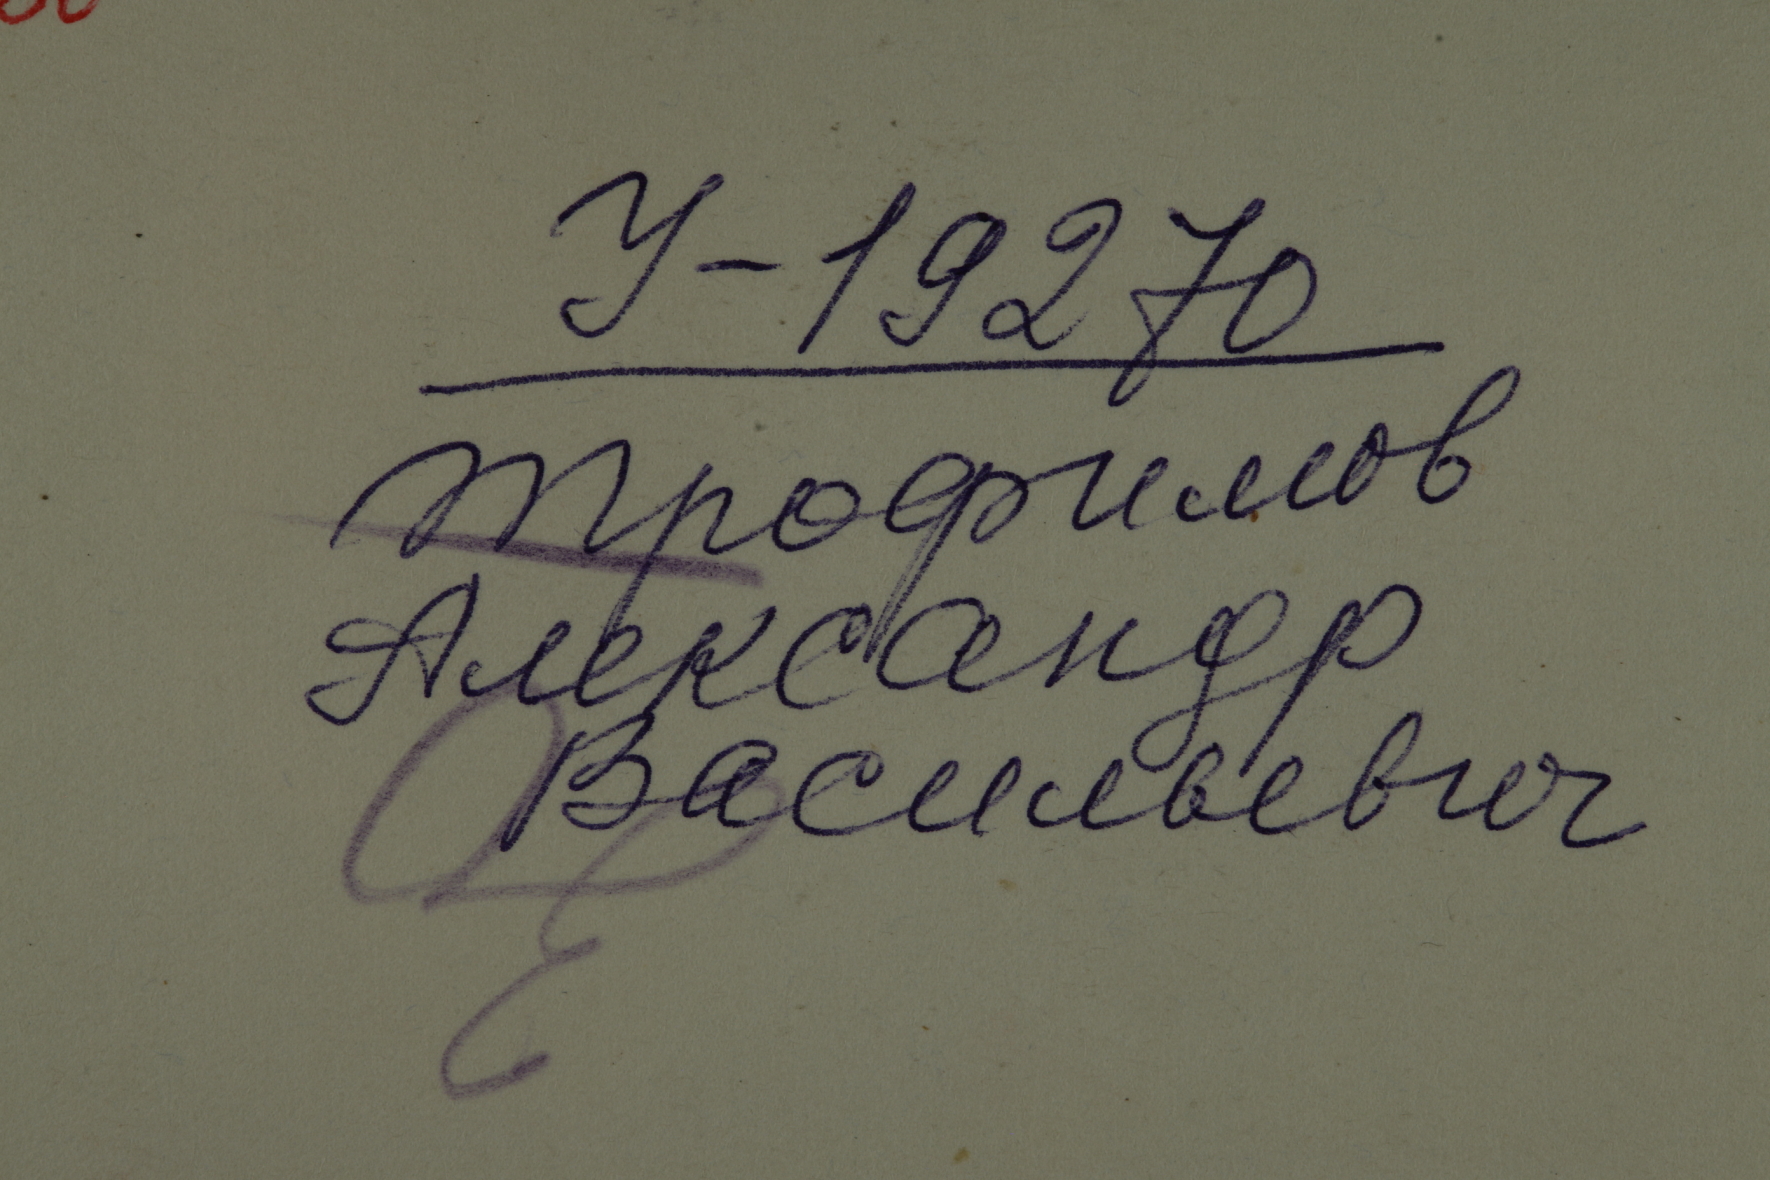 У-19270
Трофимов
Александр
Васильевич